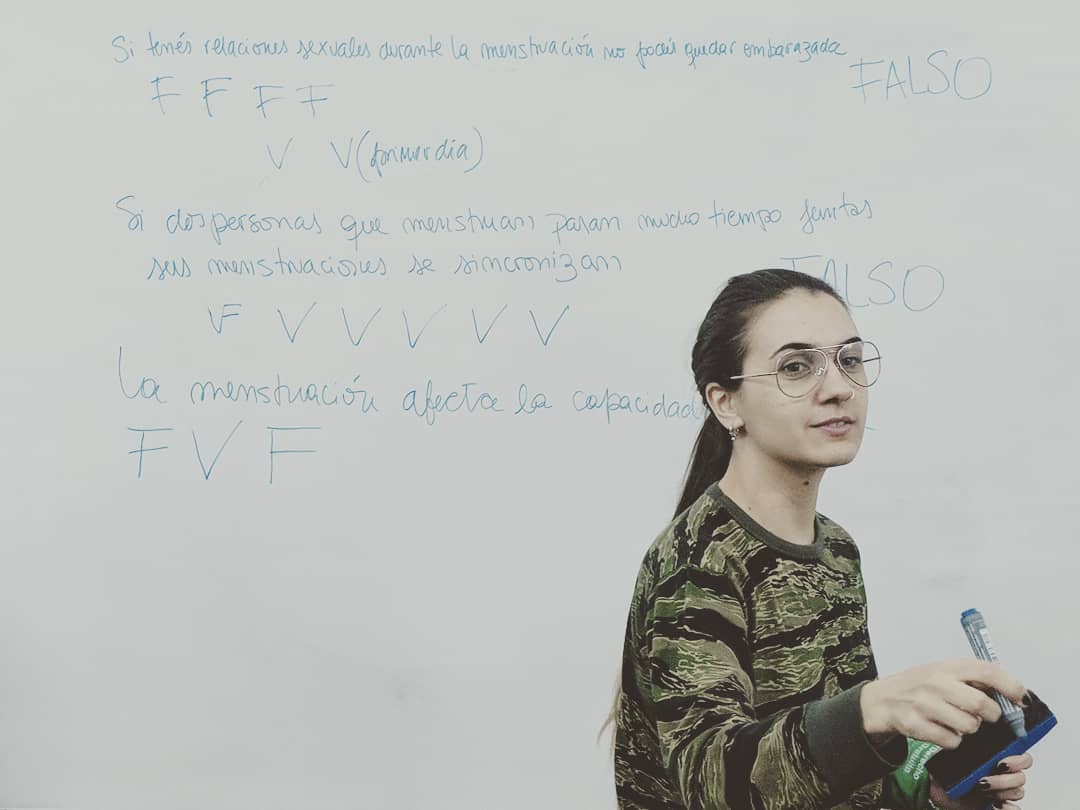 Si tenés relaciones sexuales durante la menstruación no podés quedar embarazada
FALSO
F F F F
V V (primer dia)
Si dos personas que menstruan pasan mucho tiempo juntas
sus menstruaciones se sincronizan
FALSO
F V V V V V
La menstruación afecta la capacidad
F V F
Derecho